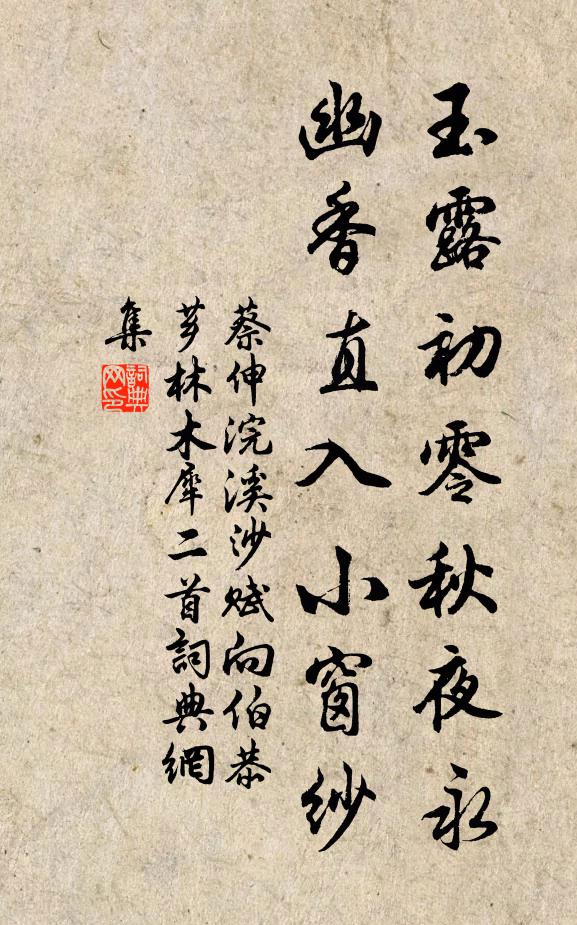 玉露初零秋夜永
幽香直入小窗紗
蔡伸浣溪沙賦向伯恭
芗林木犀二首詞典網
集
詞典网印